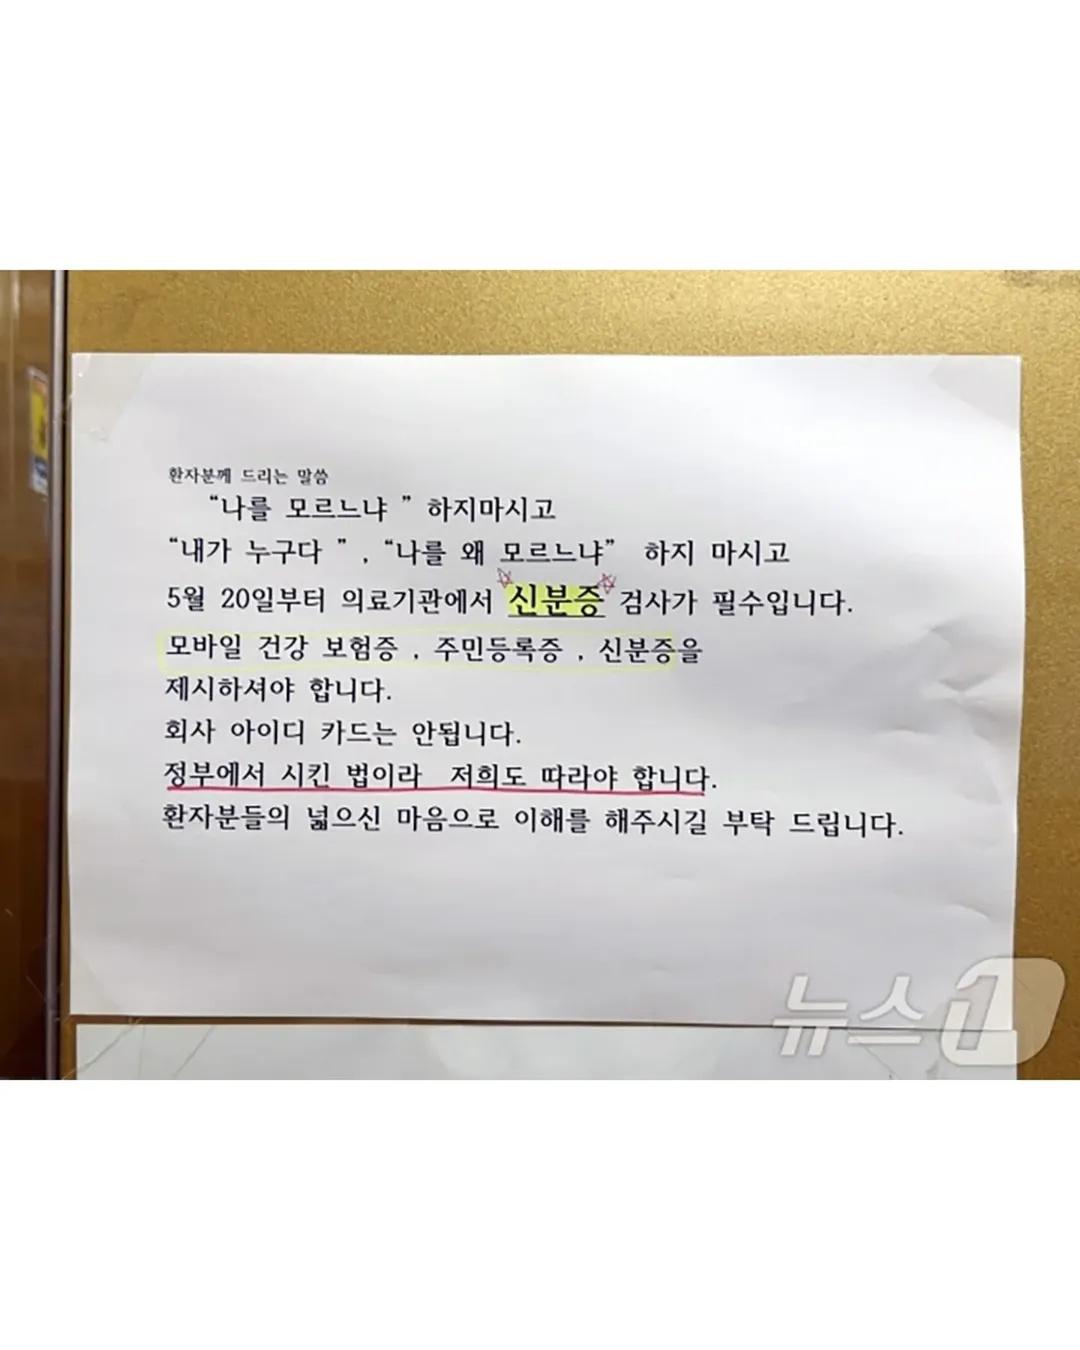 환자분께 드리는 말씀
“나를 모르느냐 ” 하지마시고
“내가 누구다 ” , “나를 왜 모르느냐” 하지 마시고
5월 20일부터 의료기관에서 신분증 검사가 필수입니다.
모바일 건강 보험증 , 주민등록증 , 신분증을
제시하셔야 합니다.
회사 아이디 카드는 안됩니다.
정부에서 시킨 법이라 저희도 따라야 합니다.
환자분들의 넓으신 마음으로 이해를 해주시길 부탁 드립니다.
뉴스1